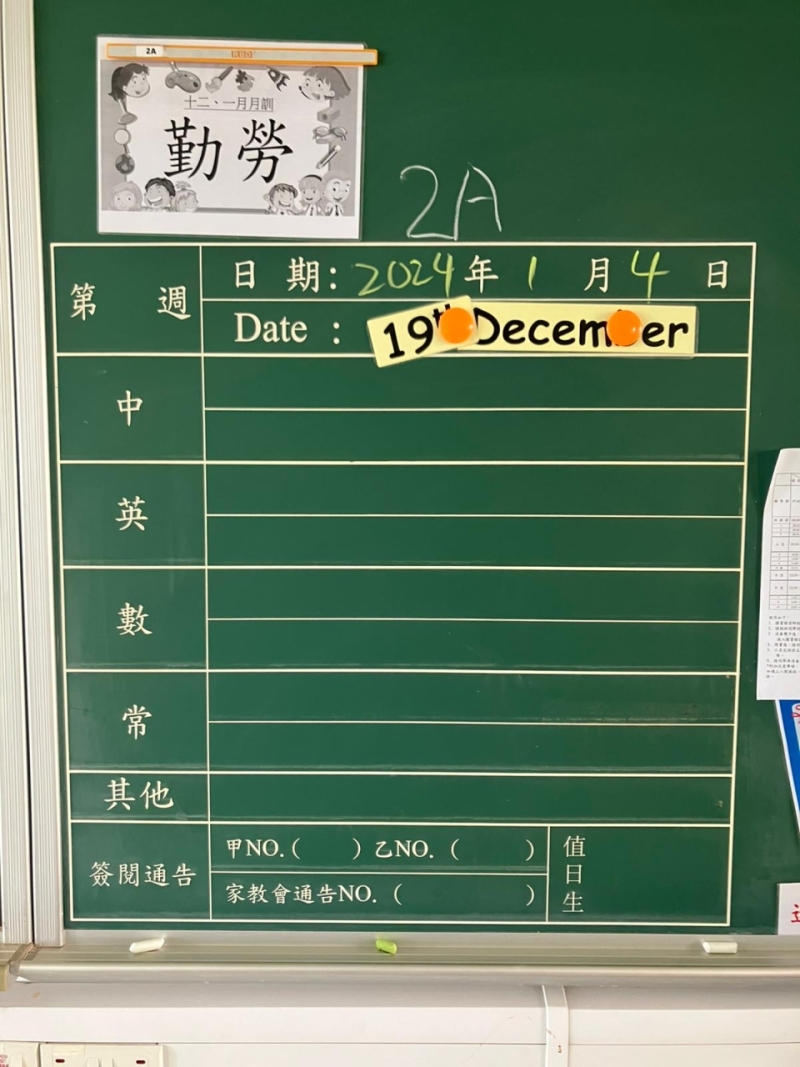 2A
十二、一月月訓
勤勞
2A
第 週
日 期：2024年 1 月 4 日
Date ： 19th December
中
英
數
常
其他
簽閱通告
甲NO.( ) 乙NO. ( )
家教會通告NO. ( )
值日生